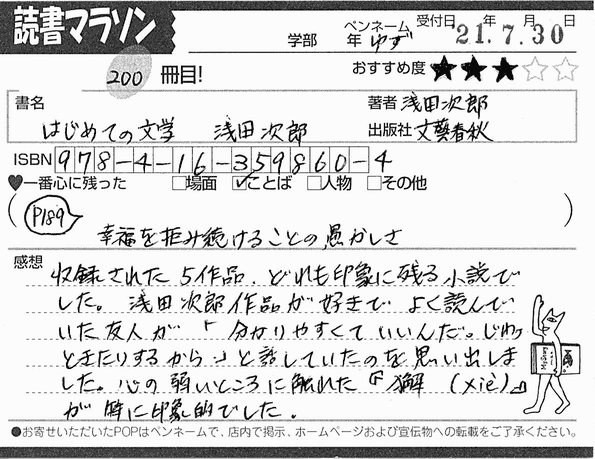 読書マラソン
学部 年 ペンネーム ゆず 受付日 21.年7.月30日
200 冊目!
おすすめ度 ★★★☆☆
書名 はじめての文学 浅田次郎
著者 浅田次郎
出版社 文藝春秋
ISBN 978-4-16-359860-4
♥一番心に残った □場面 ☑ことば □人物 □その他
(P189
幸福を拒み続けることの愚かしさ)
感想
収録された5作品、どれも印象に残る小説で
した。浅田次郎作品が好きで よく読んで
いた友人が「分かりやすくていいんだ。じわっ
ときたりするから」と話していたのを思い出しま
した。心の弱いところに触れた『獬(xiè)』
が特に印象的でした。
●お寄せいただいたPOPはペンネームで、店内で掲示、ホームページおよび宣伝物への転載をご了承ください。